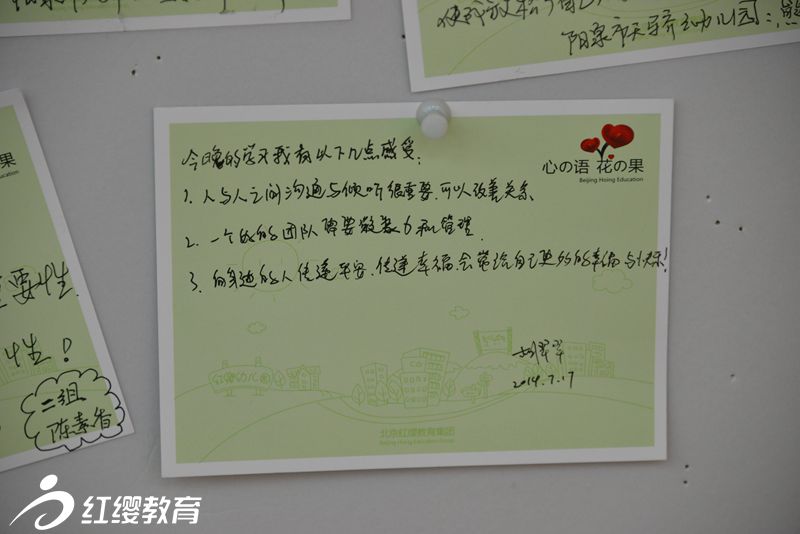 阳泉市天骄幼儿园:
心の语 花の果
Beijing Hoing Education
今晚的学习我有以下几点感受:
1. 人与人之间沟通与倾听很重要,可以改善关系
2. 一个好的团队需要凝聚力和管理.
3. 向身边的人传递平安、传递幸福,会带给自己更多的幸福与快乐!
2014.7.17
红缨幼儿园
北京红缨教育集团
Beijing Hoing Education Group
果
Education
要性
性!
二组
陈素香
红缨教育